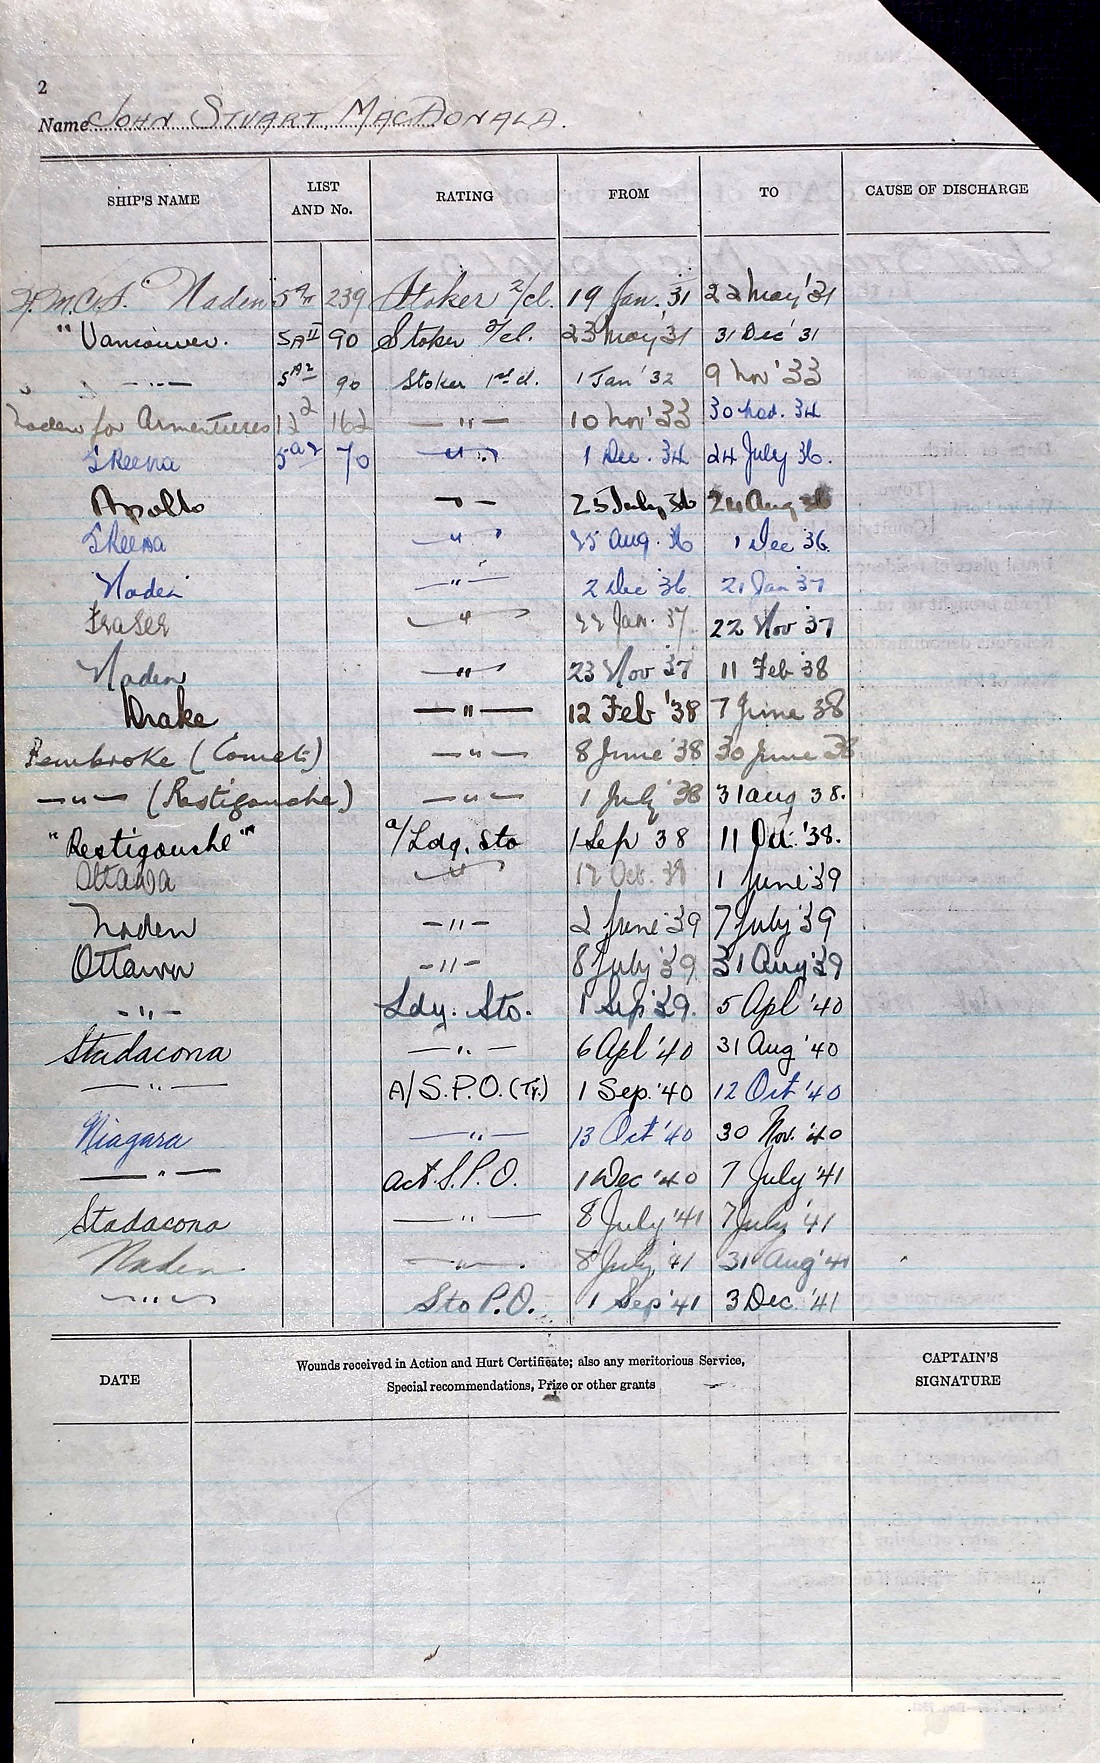 2
Name John Stuart MacDonald.
SHIP'S NAME LIST AND No. RATING FROM TO CAUSE OF DISCHARGE
H.M.C.S. Naden 5A 239 Stoker 2/cl. 19 Jan. 31 22 May '31
" Vancouver. 5AII 90 Stoker 2/cl. 23 May '31 31 Dec '31
—"— 5A2 90 Stoker 1st cl. 1 Jan '32 9 Nov '33
Naden for Armentieres 12² 162 —"— 10 Nov '33 30 Nov. 34
Skeena 5A2 70 —"— 1 Dec. 34 24 July 36.
Apollo —"— 25 July 36 24 Aug 36
Skeena —"— 25 Aug. 36 1 Dec 36.
Naden —"— 2 Dec 36. 21 Jan 37
Fraser —"— 22 Jan. 37 22 Nov '37
Naden —"— 23 Nov '37 11 Feb '38
Drake —"— 12 Feb '38 7 June 38
Pembroke (Comet) —"— 8 June '38 30 June 38
—"— (Restigouche) —"— 1 July '38 31 Aug 38.
"Restigouche" a/Ldg. Sto 1 Sep 38 11 Oct. '38.
Ottawa —"— 12 Oct. 38 1 June '39
Naden —"— 2 June '39 7 July '39
Ottawa —"— 8 July '39 31 Aug '39
—"— Ldg. Sto. 1 Sep '39. 5 Apl '40
Stadacona —"— 6 Apl '40 31 Aug '40
—"— A/S.P.O. (Ty.) 1 Sep. '40 12 Oct '40
Niagara —"— 13 Oct '40 30 Nov. '40
—"— act. S.P.O. 1 Dec '40 7 July '41
Stadacona —"— 8 July '41 7 July '41
Naden —"— 8 July '41 31 Aug '41
—"— Sto P.O. 1 Sep '41 3 Dec. '41
DATE Wounds received in Action and Hurt Certificate; also any meritorious Service, Special recommendations, Prize or other grants CAPTAIN'S SIGNATURE